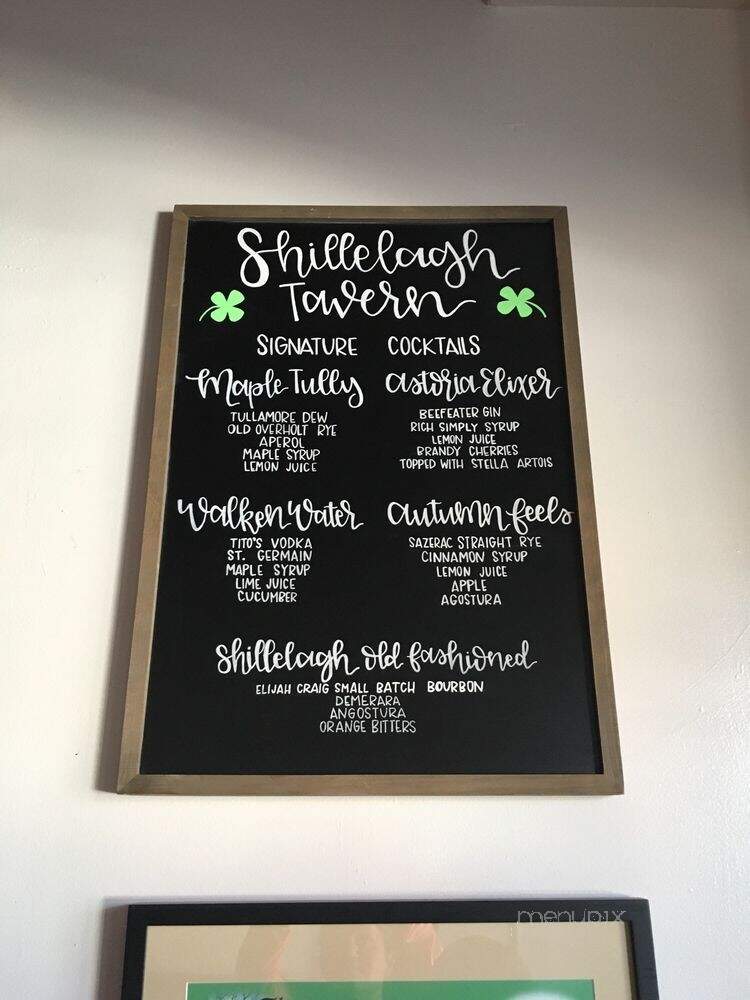 Shillelagh
Tavern
SIGNATURE COCKTAILS
Maple Tully
TULLAMORE DEW
OLD OVERHOLT RYE
APEROL
MAPLE SYRUP
LEMON JUICE
Astoria Elixer
BEEFEATER GIN
RICH SIMPLY SYRUP
LEMON JUICE
BRANDY CHERRIES
TOPPED WITH STELLA ARTOIS
Walken Water
TITO'S VODKA
ST. GERMAIN
MAPLE SYRUP
LIME JUICE
CUCUMBER
Autumn feels
SAZERAC STRAIGHT RYE
CINNAMON SYRUP
LEMON JUICE
APPLE
AGOSTURA
Shillelagh Old fashioned
ELIJAH CRAIG SMALL BATCH BOURBON
DEMERARA
ANGOSTURA
ORANGE BITTERS
menupix